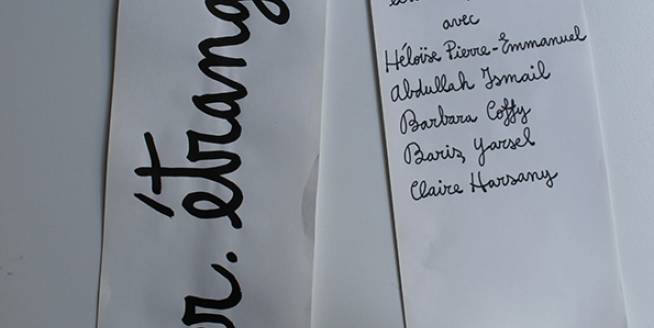 r. étrang
avec
Héloïse Pierre-Emmanuel
Abdullah Ismail
Barbara Coffy
Baris Yarsel
Claire Harsany